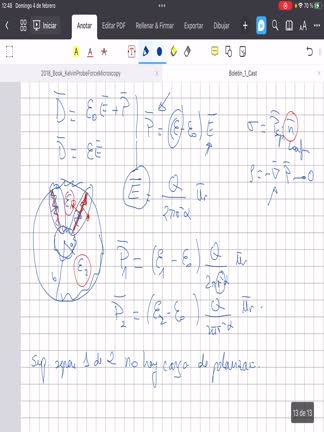 12:48 Domingo 4 de febrero
70 %
Iniciar Anotar Editar PDF Rellenar & Firmar Proteger Dibujar
2018_Book_KelvinProbeForceMicroscopy
Boletin_1_Cast
D̄ = ε₀Ē + P̄
D̄ = εĒ
P̄ = (ε - ε₀) Ē
σ = P̄ · n̄
ρ = -∇̄ P̄ → 0
Ē = Q / 2πr²α ūr
ε₁
a
ε₂
b
P̄₁ = (ε₁ - ε₀) Q / 2πr²α ūr
P̄₂ = (ε₂ - ε₀) Q / 2πr²α ūr
Sup. separa 1 de 2 no hay carga de polarizac.
13 de 13